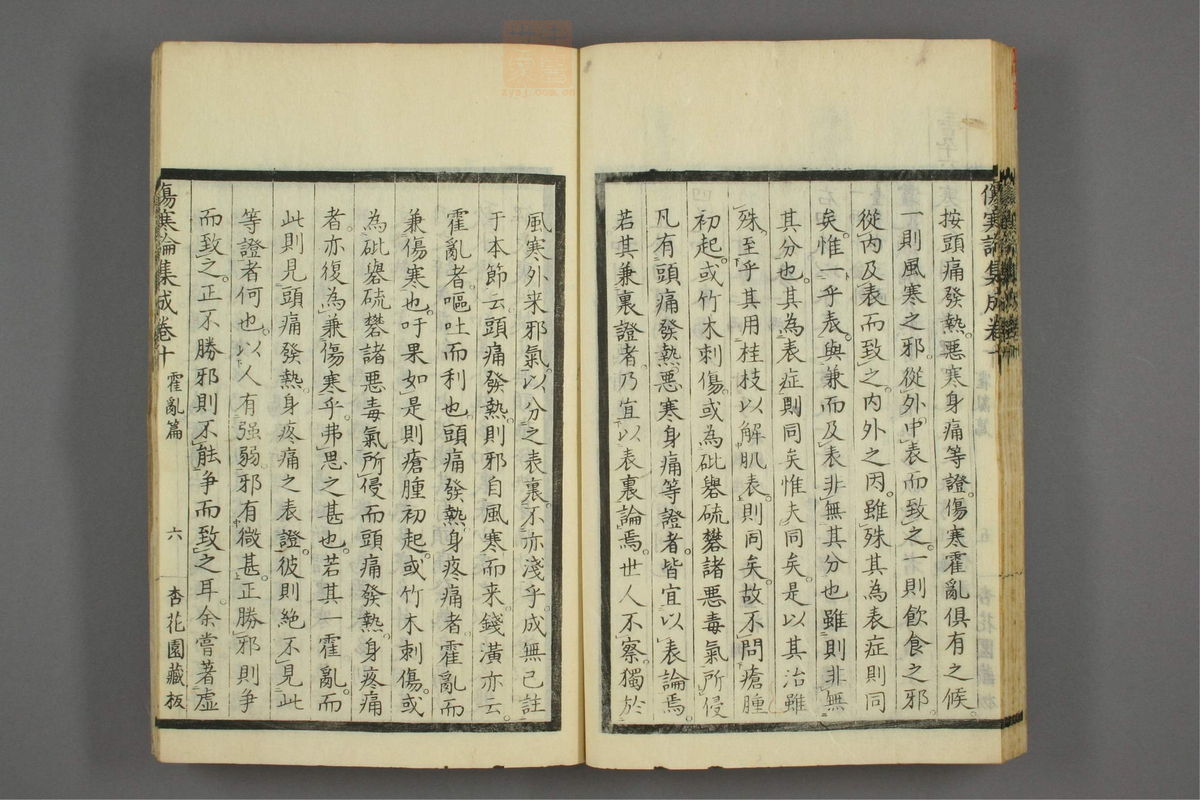 傷寒論集成卷十
按頭痛發熱。惡寒身痛等證。傷寒霍亂俱有之候。
一則風寒之邪。從外。中表而致之。一則飲食之邪
從內及表而致之。內外之因。雖殊其為表症則同
矣。惟一乎表。與兼而及表。非無其分也。雖則非無
其分也。其為表症。則同矣。惟夫同矣。是以其治雖
殊。至乎其用桂枝以解肌表。則同矣。故不問瘡腫
初起。或竹木刺傷。或為砒礜硫礬諸惡毒氣所侵
凡有頭痛發熱。惡寒身痛等證者。皆宜以表論焉。
若其兼裏證者。乃宜以表裏論焉。世人不察。獨於
風寒外来邪氣。以分之表裏。不亦淺乎。成無已註
于本節云。頭痛發熱。則邪自風寒而来。錢潢亦云。
霍亂者。嘔吐而利也。頭痛發熱。身疼痛者。霍亂而
兼傷寒也。吁果如是則瘡腫初起。或竹木刺傷。或
為砒礜硫礬諸惡毒氣所侵而頭痛發熱。身疼痛
者。亦復為兼傷寒乎。弗思之甚也。若其一霍亂。而
此則見頭痛發熱。身疼痛之表證。彼則絕不見此
等證者何也。以人有强弱。邪有微甚。正勝邪則爭
而致之。正不勝邪則不能爭而致之耳。余嘗著虛
傷寒論集成卷十 霍亂篇 六 杏花園藏板
zysj.com.cn